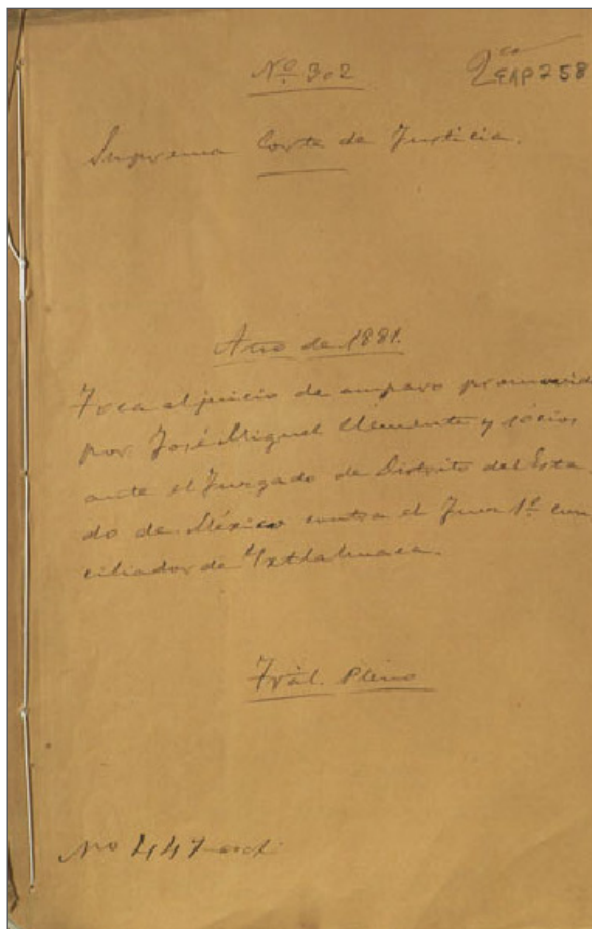 Nº 302
EAP258
Suprema Corte de Justicia.
Año de 1881.
Toca al juicio de amparo promovido
por José Miguel Clemente y socios
ante el Juzgado de Distrito del Esta
do de México contra el Juez 1º con
ciliador de Ixtlahuaca.
Trál. Pleno
No 447